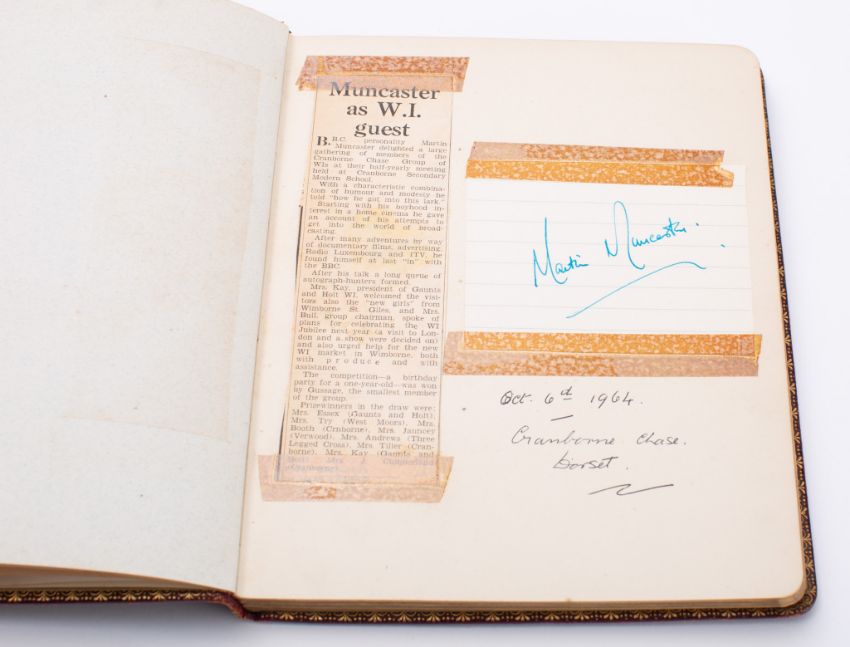 Muncaster
as W.I.
guest
B.B.C. personality Martin
Muncaster delighted a large
gathering of members of the
Cranborne Chase Group of
WIs at their half-yearly meeting
held at Cranborne Secondary
Modern School.
With a characteristic combina-
tion of humour and modesty he
told "how he got into this lark."
Starting with his boyhood in-
terest in a home cinema he gave
an account of his attempts to
get into the world of broad-
casting.
After many adventures by way
of documentary films, advertising,
Radio Luxembourg and ITV, he
found himself at last "in" with
the BBC.
After his talk a long queue of
autograph-hunters formed.
Mrs. Kay, president of Gaunts
and Holt WI, welcomed the visi-
tors also the "new girls" from
Wimborne St. Giles, and Mrs.
Bull, group chairman, spoke of
plans for celebrating the WI
Jubilee next year (a visit to Lon-
don and a show were decided on)
and also urged help for the new
WI market in Wimborne, both
with produce and with
assistance.
The competition—a birthday
party for a one-year-old—was won
by Gussage, the smallest member
of the group.
Prizewinners in the draw were:
Mrs. Essex (Gaunts and Holt),
Mrs. Try (West Moors), Mrs.
Booth (Crnborne), Mrs. Jauncey
(Verwood), Mrs. Andrews (Three
Legged Cross), Mrs. Tiller (Cran-
borne), Mrs. Kay (Gaunts and
Holt) Mrs.
(Cranborne).
Martin Muncaster.
Oct. 6th 1964.
Cranborne Chase.
Dorset.